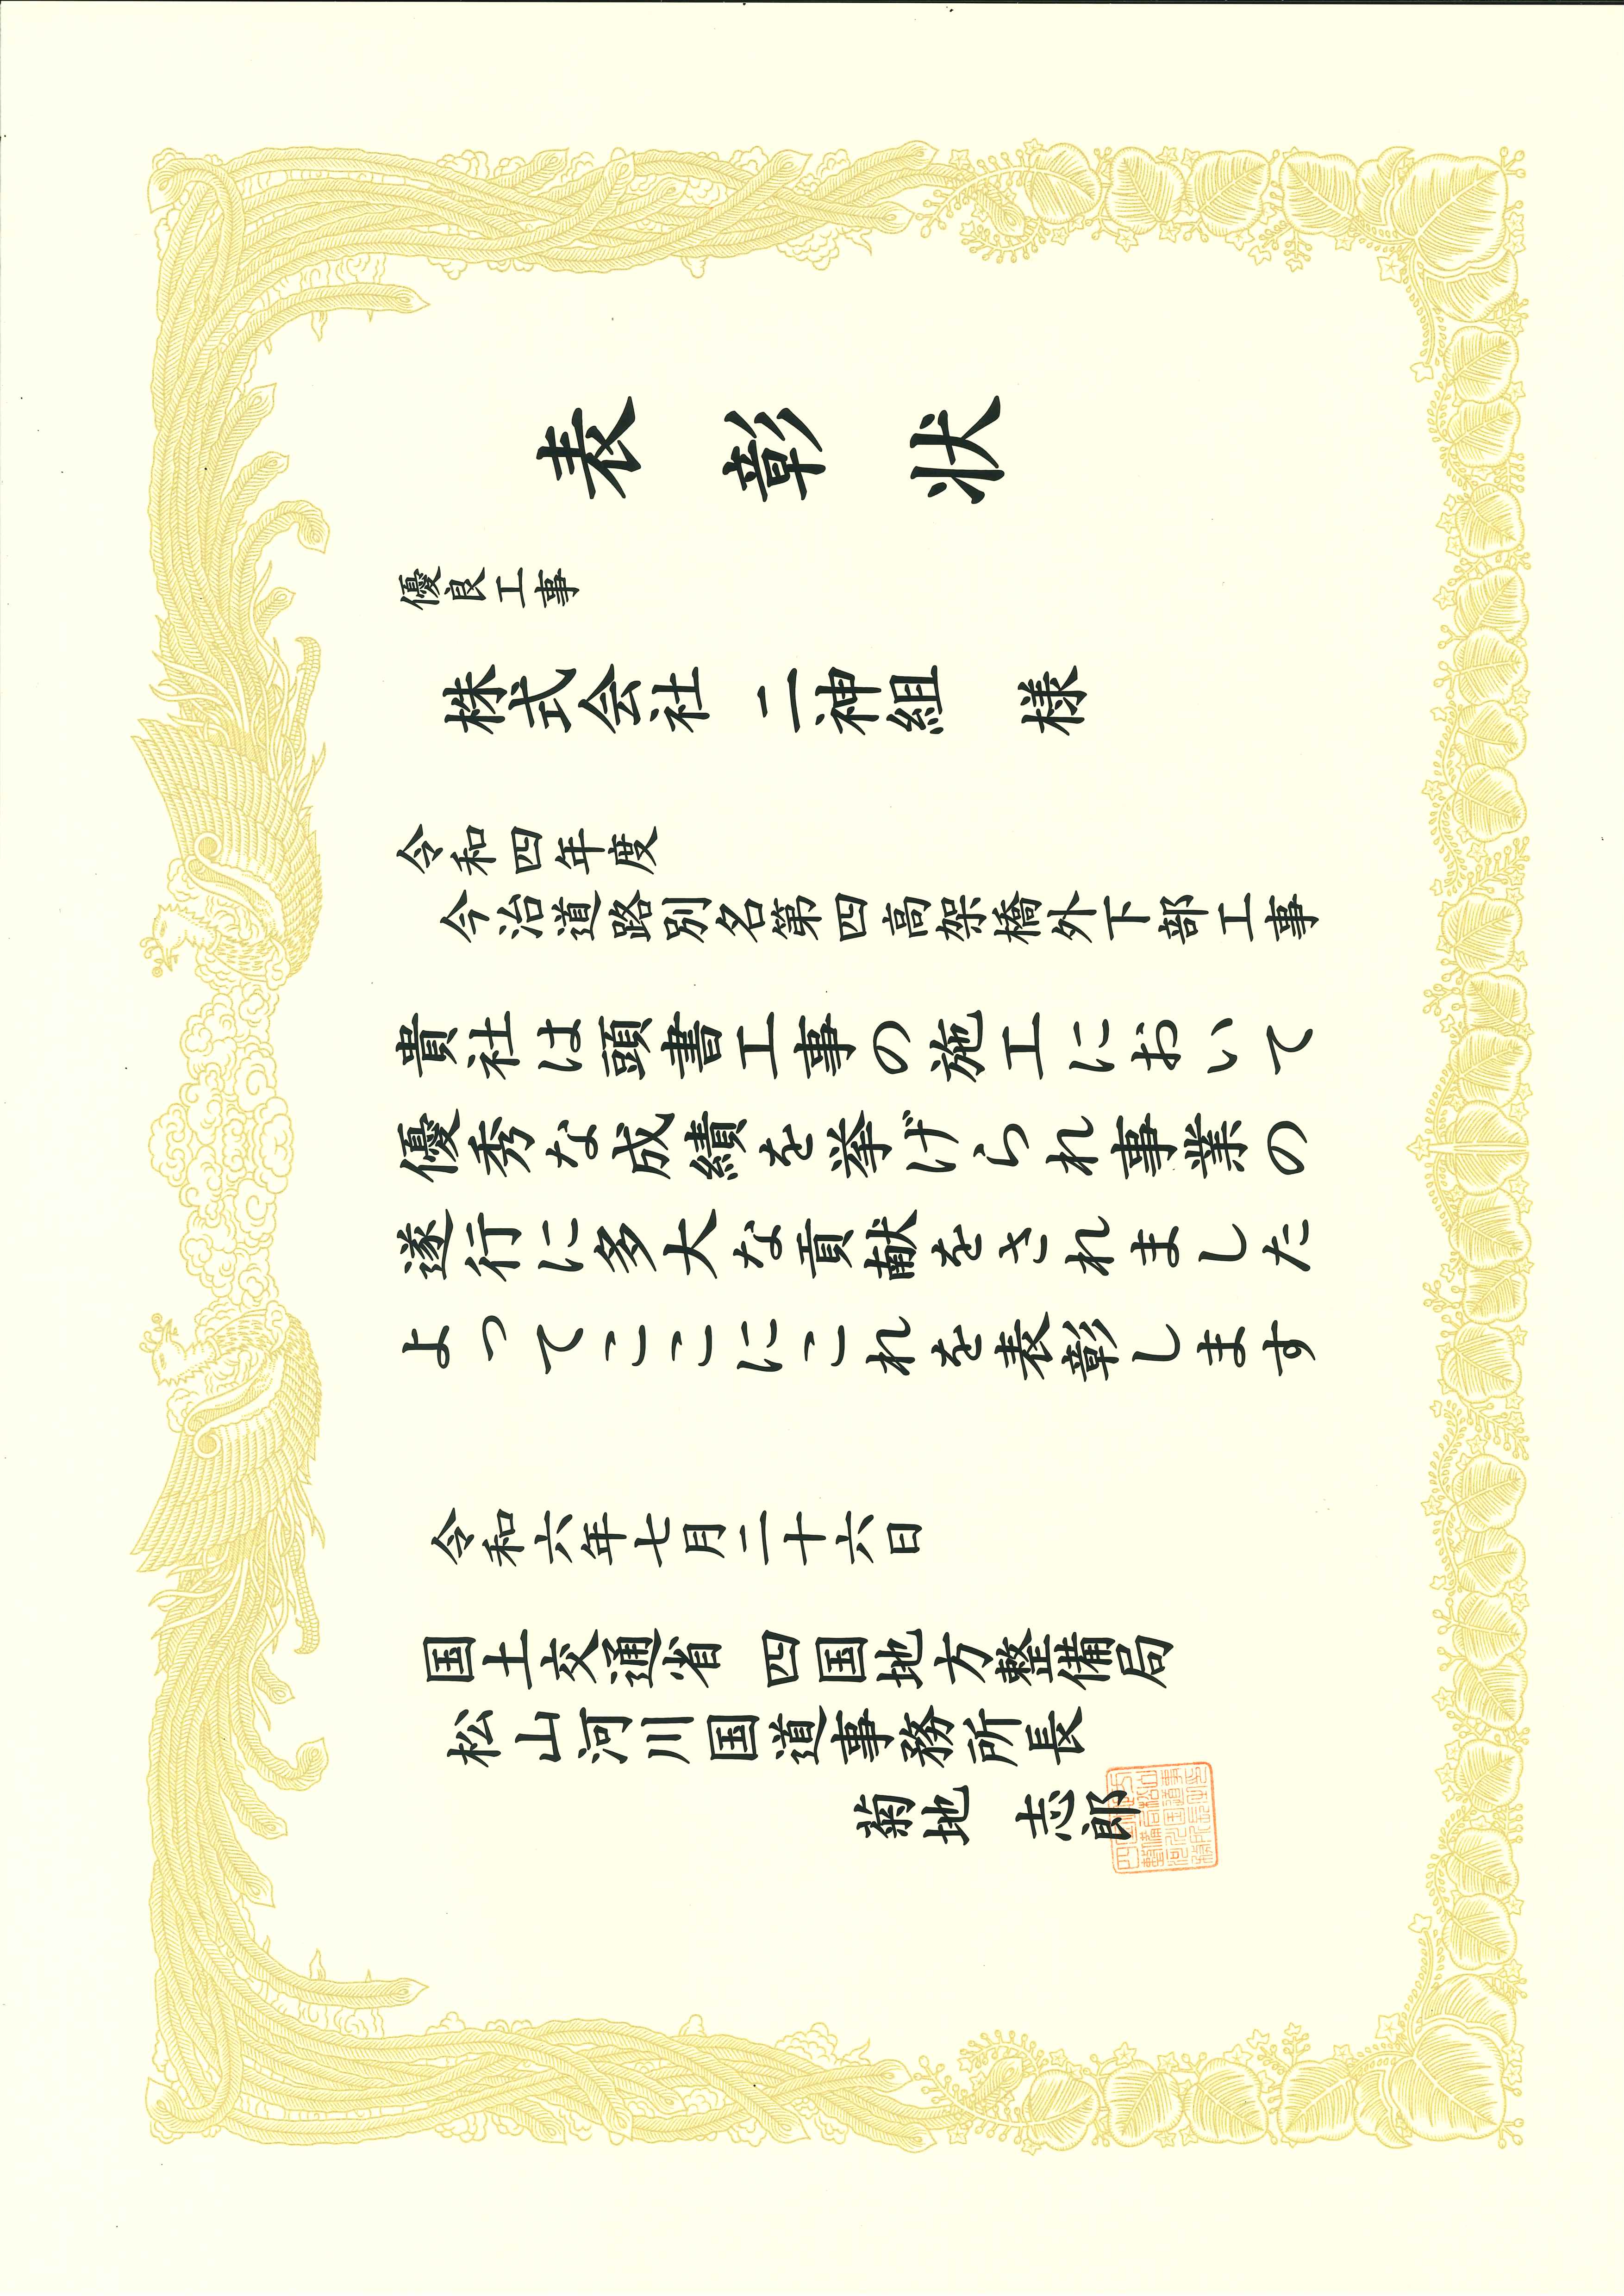 表彰状
優良工事
株式会社 二神組 様
令和四年度
今治道路別名第四高架橋外下部工事
貴社は頭書工事の施工において
優秀な成績を挙げられ事業の
遂行に多大な貢献をされました
よってここにこれを表彰します
令和六年七月二十六日
国土交通省 四国地方整備局
松山河川国道事務所長
菊地 志郎